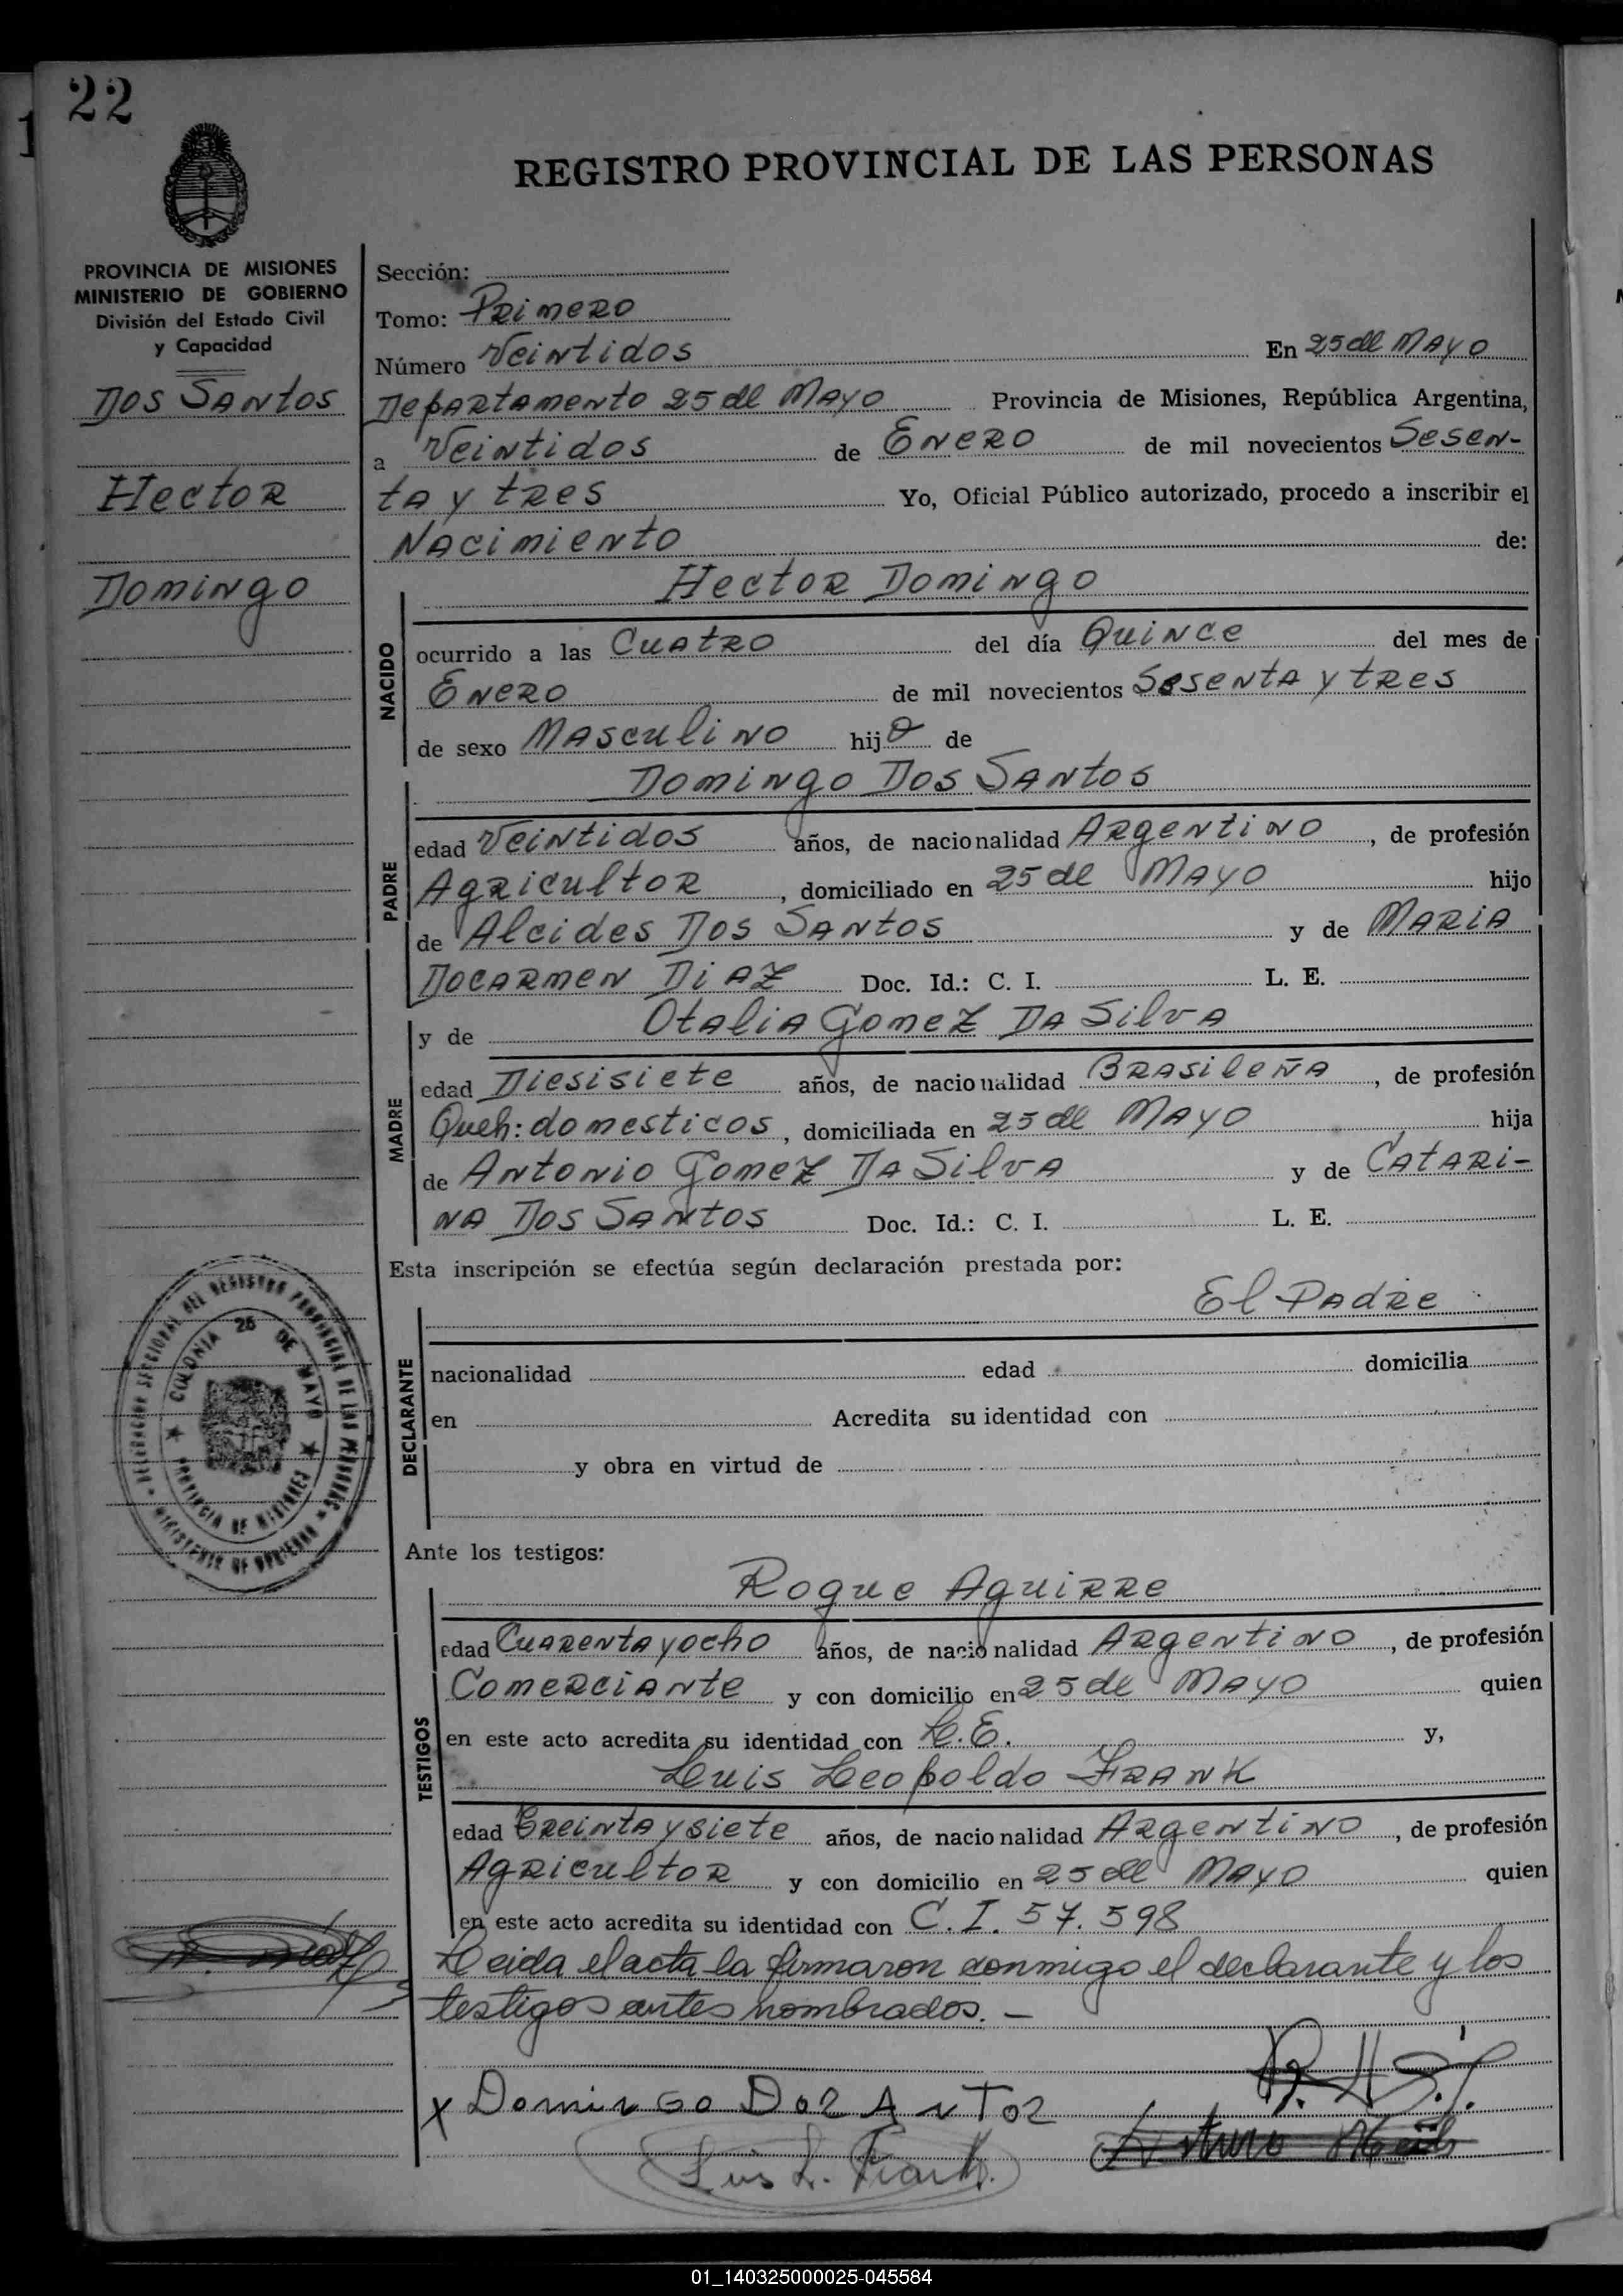 22
REGISTRO PROVINCIAL DE LAS PERSONAS
PROVINCIA DE MISIONES
MINISTERIO DE GOBIERNO
División del Estado Civil
y Capacidad
Dos Santos
Hector
Domingo
Sección:
Tomo: Primero
Número Veintidos En 25 de Mayo
Departamento 25 de Mayo Provincia de Misiones, República Argentina,
a Veintidos de Enero de mil novecientos Sesen-
ta y tres Yo, Oficial Público autorizado, procedo a inscribir el
Nacimiento de:
Hector Domingo
NACIDO
ocurrido a las Cuatro del día Quince del mes de
Enero de mil novecientos Sesenta y tres
de sexo Masculino hijo de
Domingo Dos Santos
PADRE
edad Veintidos años, de nacionalidad Argentino, de profesión
Agricultor, domiciliado en 25 de Mayo hijo
de Alcides Dos Santos y de Maria
Docarmen Diaz Doc. Id.: C. I. L. E.
y de Otalia Gomez Da Silva
MADRE
edad Diesisiete años, de nacionalidad Brasileña, de profesión
Queh: domesticos, domiciliada en 25 de Mayo hija
de Antonio Gomez Da Silva y de Catari-
na Dos Santos Doc. Id.: C. I. L. E.
Esta inscripción se efectúa según declaración prestada por:
El Padre
DECLARANTE
nacionalidad edad domicilia
en Acredita su identidad con
y obra en virtud de
DELEGACION SECCIONAL DEL REGISTRO PROVINCIAL DE LAS PERSONAS
MINISTERIO DE GOBIERNO
COLONIA 25 DE MAYO
PROVINCIA DE MISIONES
Ante los testigos:
Roque Aguirre
TESTIGOS
edad Cuarenta y ocho años, de nacionalidad Argentino, de profesión
Comerciante y con domicilio en 25 de Mayo quien
en este acto acredita su identidad con L.E. y,
Luis Leopoldo Frank
edad Treinta y siete años, de nacionalidad Argentino, de profesión
Agricultor y con domicilio en 25 de Mayo quien
en este acto acredita su identidad con C.I. 57.598
Leida el acta la firmaron conmigo el declarante y los
testigos antes nombrados. -
x Domingo Dos Antos
Luis L. Frank.
01_140325000025-045584